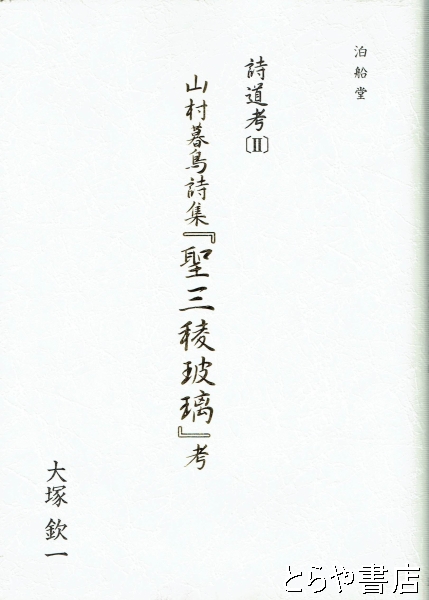 泊船堂
詩道考〔Ⅱ〕
山村暮鳥詩集『聖三稜玻璃』考
大塚欽一
とらや書店